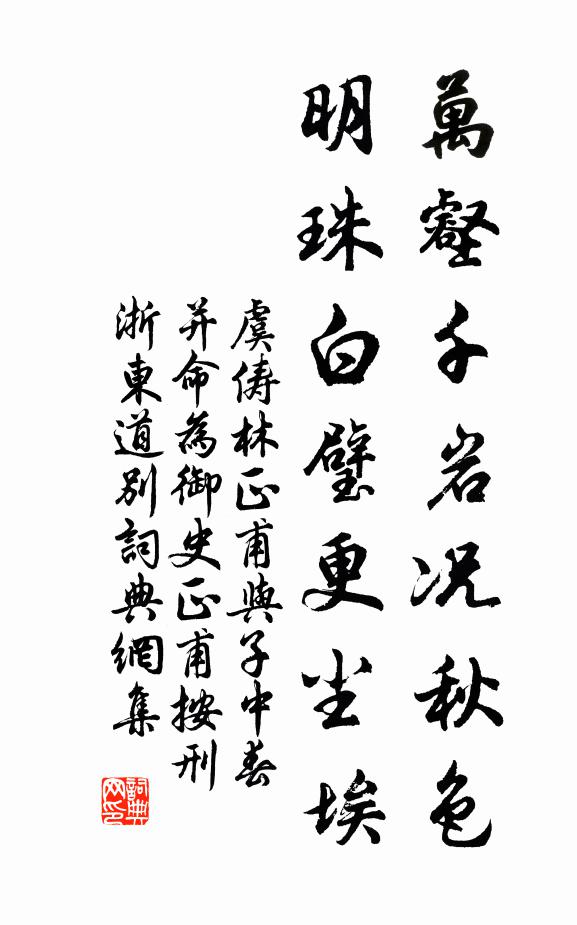 萬壑千岩况秋色
明珠白璧更尘埃
虞俦林正甫與子中春
并命為御史正甫按刑
浙東道别詞典網集
詞典网印